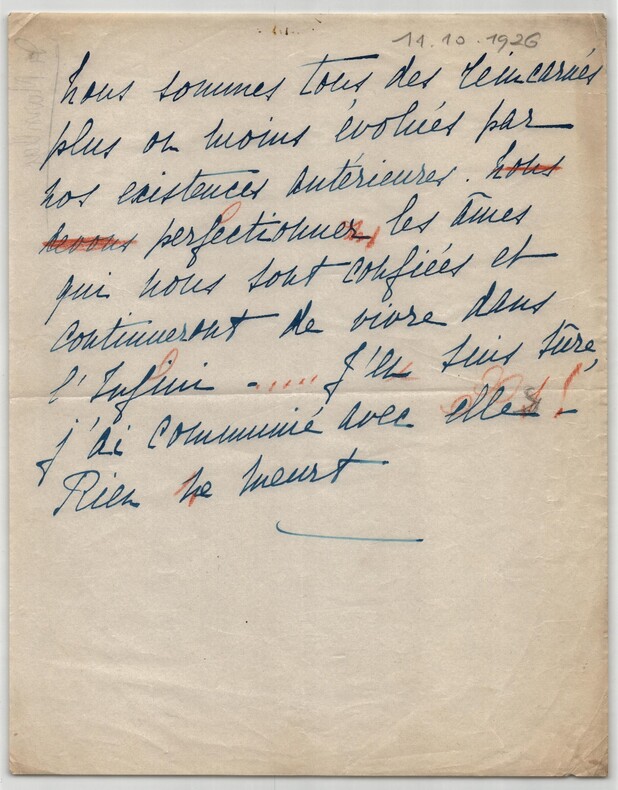 11.10.1926
Nous sommes tous des réincarnés
plus ou moins évolués par
nos existences antérieures. Nous
devons perfectionner les âmes
qui nous sont confiées et
continueront de vivre dans
l'Infini - ..... J'en suis sûre,
j'ai communié avec elles !
Rien ne meurt